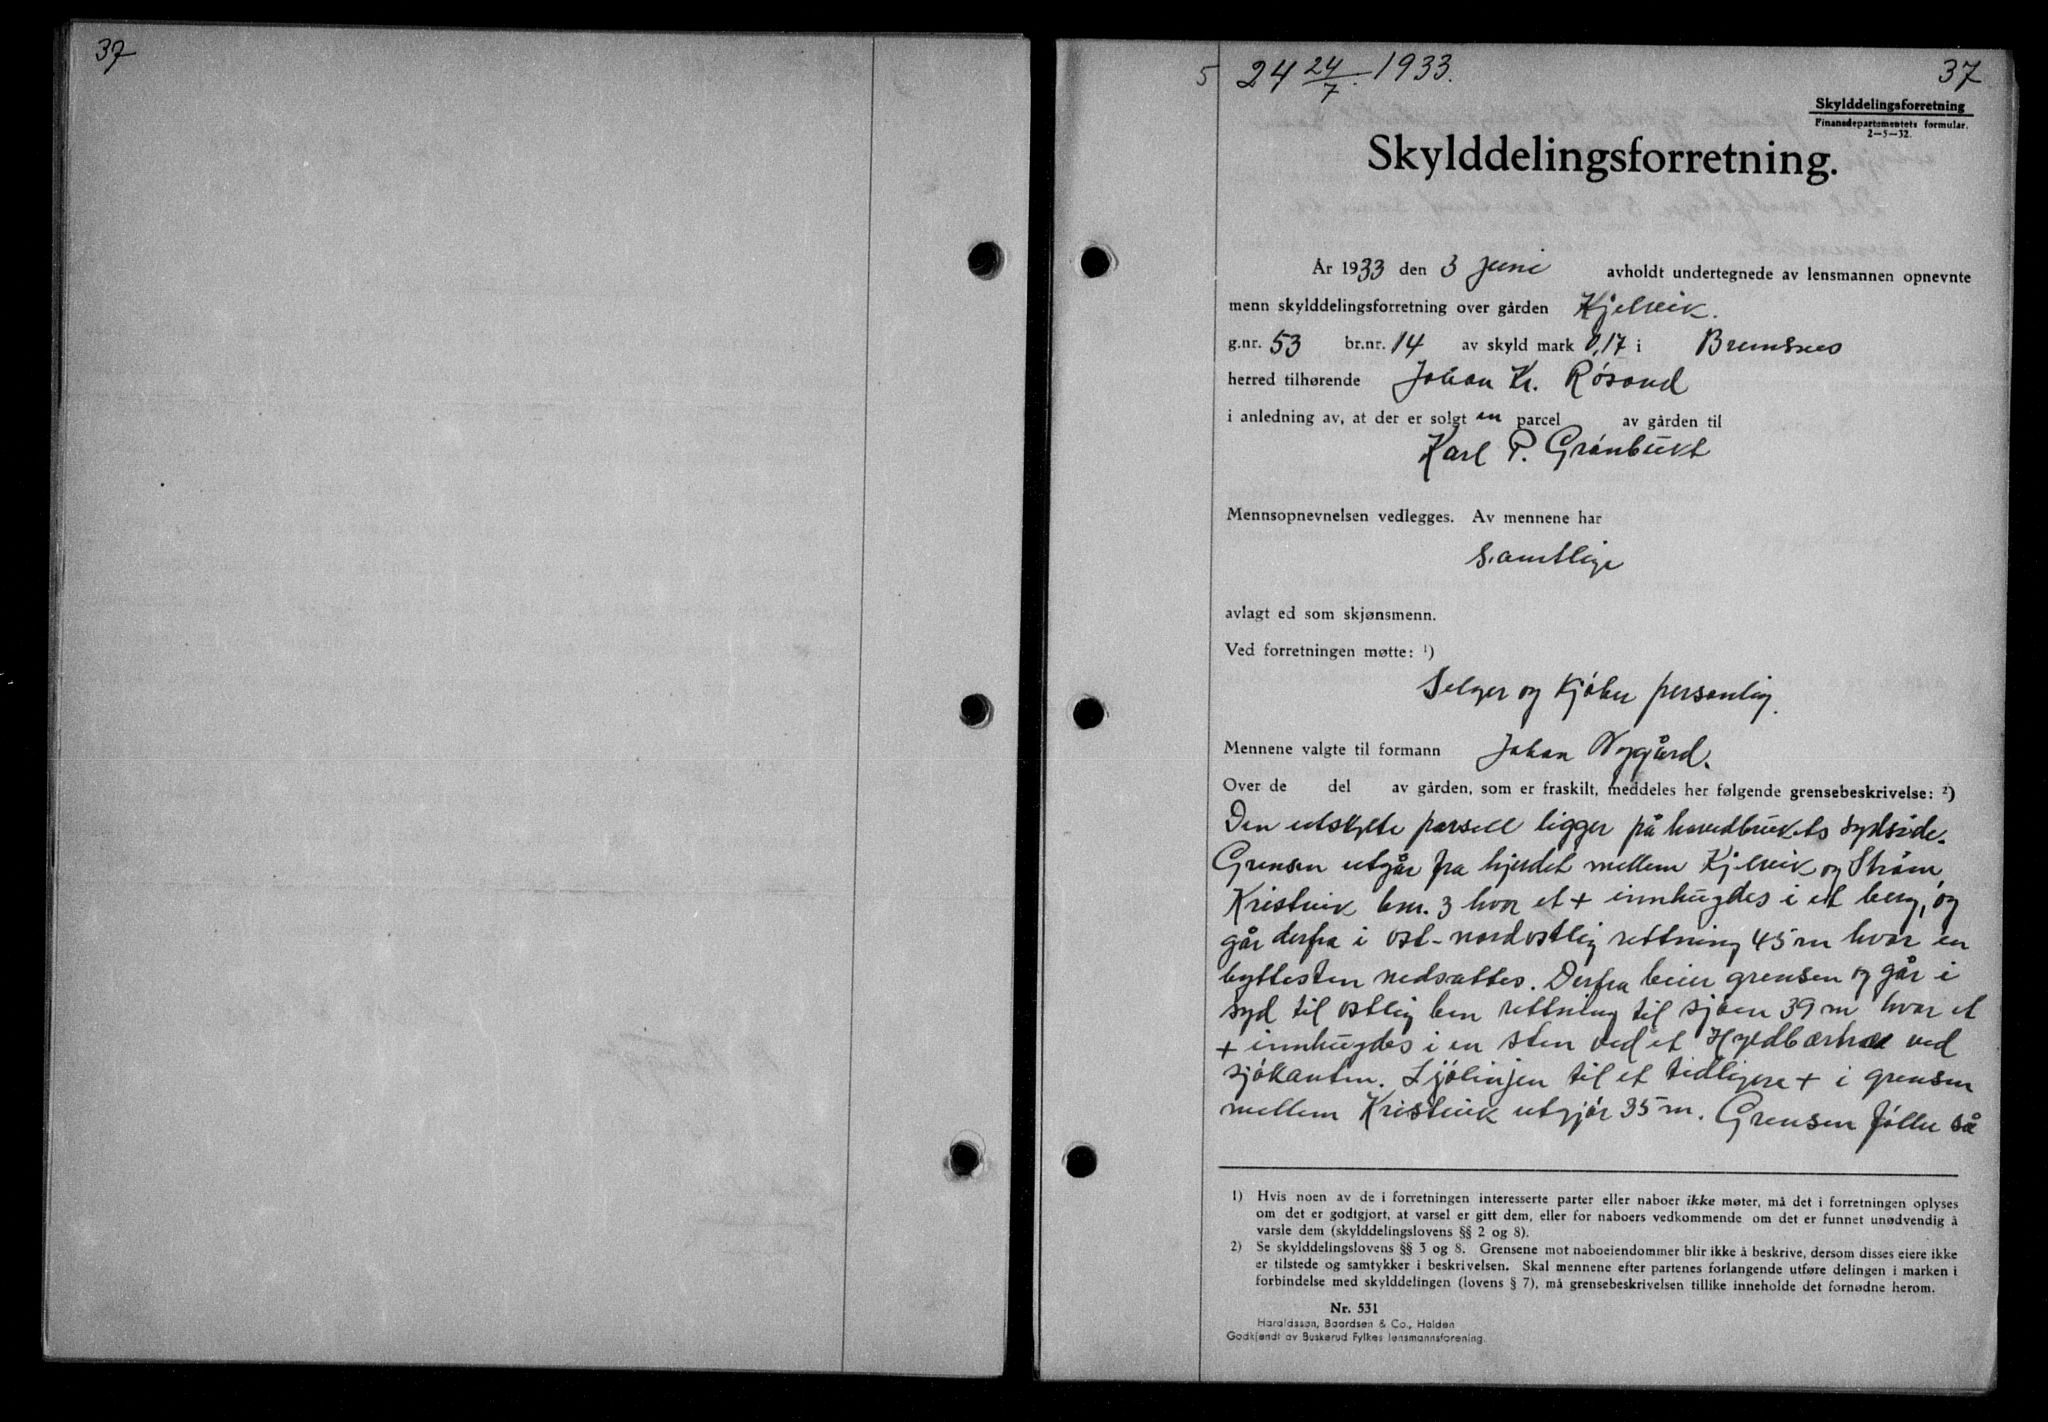 37
5 24 24/7. 1933.
37
Skylddelingsforretning
Finansdepartementets formular.
2—5—32.
Skylddelingsforretning.
År 1933 den 3 juni avholdt undertegnede av lensmannen opnevnte
menn skylddelingsforretning over gården Kjelvik.
g.nr. 53 br.nr. 14 av skyld mark 0,17 i Bremsnes
herred tilhørende Johan Kr. Røsand
i anledning av, at der er solgt en parcel av gården til
Karl P. Grønbukt
Mennsopnevnelsen vedlegges. Av mennene har
samtlige
avlagt ed som skjønsmenn.
Ved forretningen møtte: 1)
Selger og kjøber personlig.
Mennene valgte til formann Johan Nygård.
Over de del av gården, som er fraskilt, meddeles her følgende grensebeskrivelse: 2)
Den utskylte parsell ligger på hovedbrukets sydside.
Grensen utgår fra hjerdet mellem Kjelvik og Strøm,
Kristvik bnr. 3 hvor et + innhugdes i et berg, og
går derfra i ost-nordostlig rettning 45 m hvor en
byttesten nedsattes. Derfra beier grensen og går i
syd til ostlig ben rettning til sjøen 39 m hvor et
+ innhugdes i en sten ved et Hyldbærtræ ved
sjøkanten. Sjølinjen til et tidligere + i grensen
mellem Kristvik utgjør 35 m. Grensen føller så
1) Hvis noen av de i forretningen interesserte parter eller naboer ikke møter, må det i forretningen oplyses
om det er godtgjort, at varsel er gitt dem, eller for naboers vedkommende om det er funnet unødvendig å
varsle dem (skylddelingslovens §§ 2 og 8).
2) Se skylddelingslovens §§ 3 og 8. Grensene mot naboeiendommer blir ikke å beskrive, dersom disses eiere ikke
er tilstede og samtykker i beskrivelsen. Skal mennene efter partenes forlangende utføre delingen i marken i
forbindelse med skylddelingen (lovens § 7), må grensebeskrivelsen tillike inneholde det fornødne herom.
Nr. 531
Haraldssøn, Baardsen & Co., Halden
Godkjendt av Buskerud Fylkes lensmannsforening.